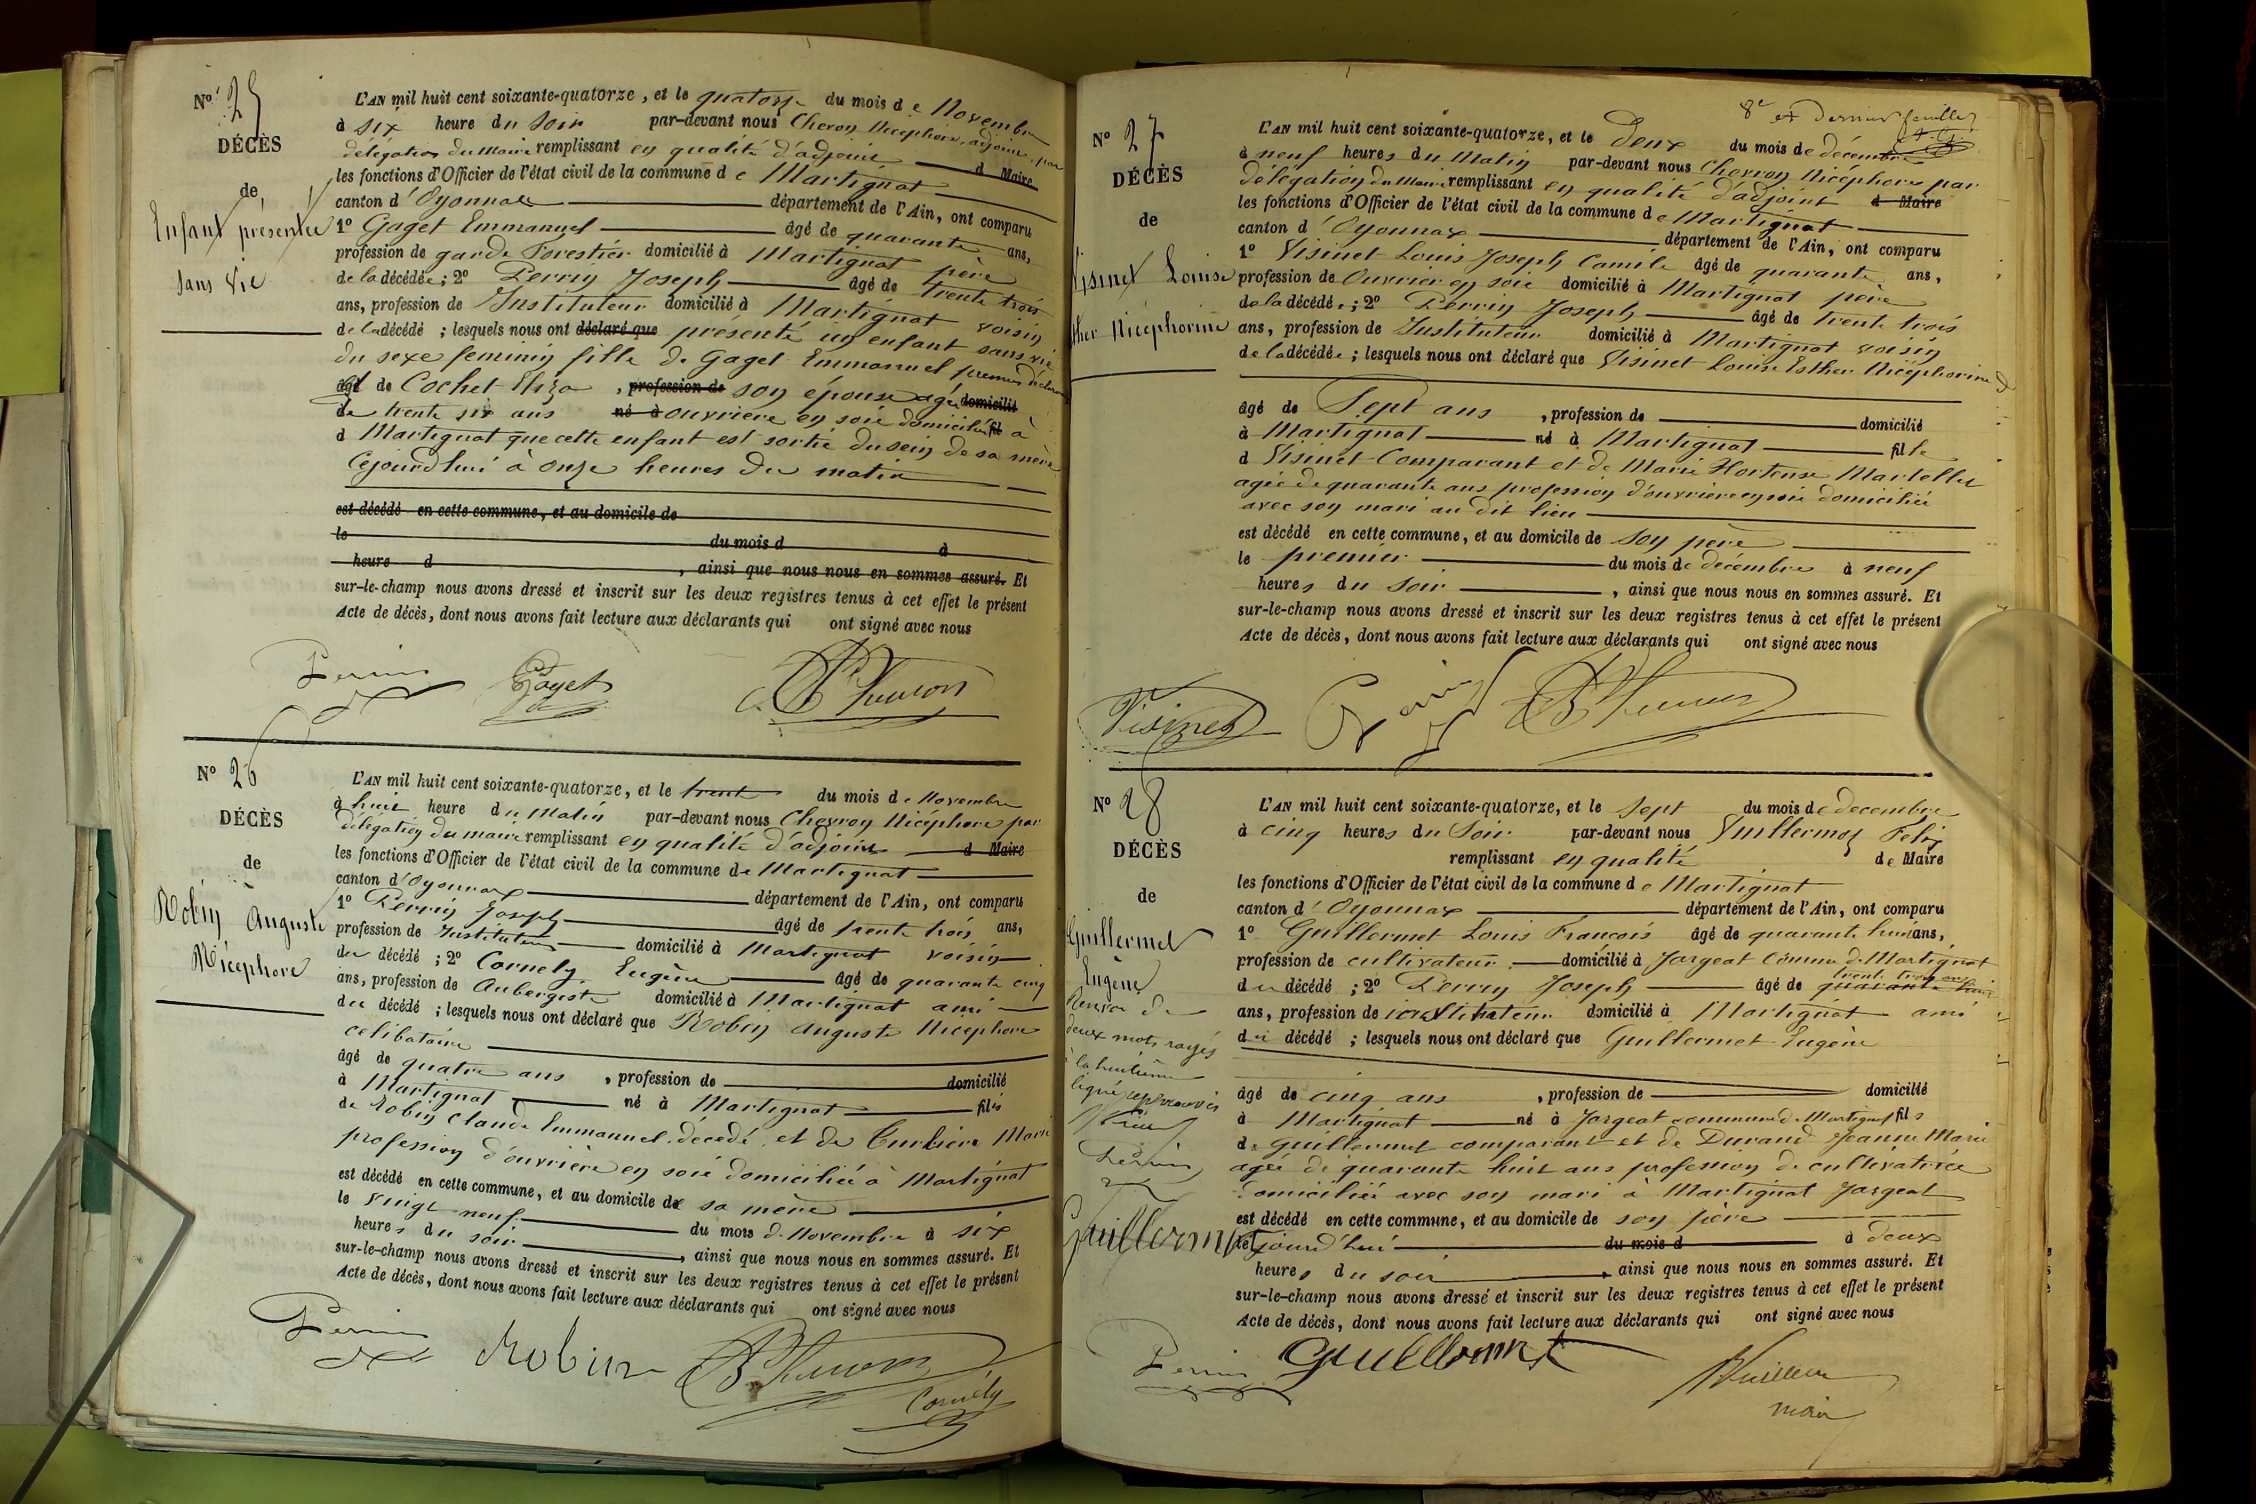 N° 25
DÉCÈS
de
Enfant présentée
sans vie
L'AN mil huit cent soixante-quatorze, et le quatorze du mois de Novembre
à six heure du soir par-devant nous Chevron Nicéphore, adjoint, par
délégation du Maire remplissant en qualité d'adjoint d Maire
les fonctions d'Officier de l'état civil de la commune de Martignat
canton d'Oyonnax département de l'Ain, ont comparu
1° Gaget Emmanuel âgé de quarante ans,
profession de garde Forestier domicilié à Martignat père
de la décédée; 2° Perrin Joseph âgé de trente trois
ans, profession de Instituteur domicilié à Martignat voisin
de la décédé; lesquels nous ont déclaré que présenté un enfant sans vie
du sexe feminin fille de Gaget Emmanuel premier déclarant
âgé de Cochet Eliza, profession de son épouse agée domicilié
de trente six ans né à ouvrière en soie domiciliée fil à
d Martignat que cette enfant est sortie du sein de sa mère
Cejourd'hui à onze heures du matin
est décédé en cette commune, et au domicile de
le du mois d à
heure d , ainsi que nous nous en sommes assuré. Et
sur-le-champ nous avons dressé et inscrit sur les deux registres tenus à cet effet le présent
Acte de décès, dont nous avons fait lecture aux déclarants qui ont signé avec nous
Perrin Gaget Chevron
N° 26
DÉCÈS
de
Robin Auguste
Nicéphore
L'AN mil huit cent soixante-quatorze, et le trente du mois de Novembre
à huit heure du Matin par-devant nous Chevron Nicéphore par
délégation du maire remplissant en qualité d'adjoint d Maire
les fonctions d'Officier de l'état civil de la commune de Martignat
canton d'Oyonnax département de l'Ain, ont comparu
1° Perrin Joseph âgé de trente trois ans,
profession de Instituteur domicilié à Martignat voisin
du décédé; 2° Cornely Eugène âgé de quarante cinq
ans, profession de Aubergiste domicilié à Martignat ami
du décédé; lesquels nous ont déclaré que Robin Auguste Nicephore
celibataire
âgé de quatre ans, profession de domicilié
à Martignat né à Martignat fils
de Robin Claude Emmanuel décédé et de Marie
profession d'ouvrière en soie domiciliée à Martignat
est décédé en cette commune, et au domicile de sa mère
le vingt neuf du mois de Novembre à six
heures du soir, ainsi que nous nous en sommes assuré. Et
sur-le-champ nous avons dressé et inscrit sur les deux registres tenus à cet effet le présent
Acte de décès, dont nous avons fait lecture aux déclarants qui ont signé avec nous
Perrin Robin Chevron
Cornely
8e et dernier feuillet
N° 27
DÉCÈS
de
Visinet Louise
Esther Nicéphorine
L'AN mil huit cent soixante-quatorze, et le Deux du mois de décembre
à neuf heures du Matin par-devant nous Chevron Nicéphore par
délégation du Maire remplissant en qualité d'adjoint d Maire
les fonctions d'Officier de l'état civil de la commune de Martignat
canton d'Oyonnax département de l'Ain, ont comparu
1° Visinet Louis Joseph Camile âgé de quarante ans,
profession de Ouvrier en soie domicilié à Martignat père
de la décédée; 2° Perrin Joseph âgé de trente trois
ans, profession de Instituteur domicilié à Martignat voisin
de la décédée; lesquels nous ont déclaré que Visinet Louise Esther Nicéphorine
âgé de Sept ans, profession de domicilié
à Martignat né à Martignat fille
d Visinet Comparant et de Marie Hortense Martellet
agée de quarante ans profession d'ouvrière en soie domiciliée
avec son mari au dit lieu
est décédé en cette commune, et au domicile de son père
le premier du mois de décembre à neuf
heures du soir, ainsi que nous nous en sommes assuré. Et
sur-le-champ nous avons dressé et inscrit sur les deux registres tenus à cet effet le présent
Acte de décès, dont nous avons fait lecture aux déclarants qui ont signé avec nous
Visinet Perrin Chevron
N° 28
DÉCÈS
de
Guillermet
Eugène
Renvoi de
deux mots rayés
à la huitième
ligne approuvés
Perrin
Guillermet
L'AN mil huit cent soixante-quatorze, et le Sept du mois de decembre
à cinq heures du Soir par-devant nous Vuillermoz Felix
remplissant en qualité de Maire
les fonctions d'Officier de l'état civil de la commune de Martignat
canton d'Oyonnax département de l'Ain, ont comparu
1° Guillermet Louis François âgé de quarante huit ans,
profession de cultivateur domicilié à Jargeat Commune de Martignat
trente trois ans
du décédé; 2° Perrin Joseph âgé de quarante huit
ans, profession de instituteur domicilié à Martignat ami
du décédé; lesquels nous ont déclaré que Guillermet Eugène
âgé de cinq ans, profession de domicilié
à Martignat né à Jargeat commune de Martignat fils
de Guillermet comparant et de Durand Jeanne Marie
agée de quarante huit ans profession de cultivatrice
domiciliée avec son mari à Martignat Jargeat
est décédé en cette commune, et au domicile de son père
le cejourd'hui du mois d à deux
heures du soir, ainsi que nous nous en sommes assuré. Et
sur-le-champ nous avons dressé et inscrit sur les deux registres tenus à cet effet le présent
Acte de décès, dont nous avons fait lecture aux déclarants qui ont signé avec nous
Perrin Guillermet
maire